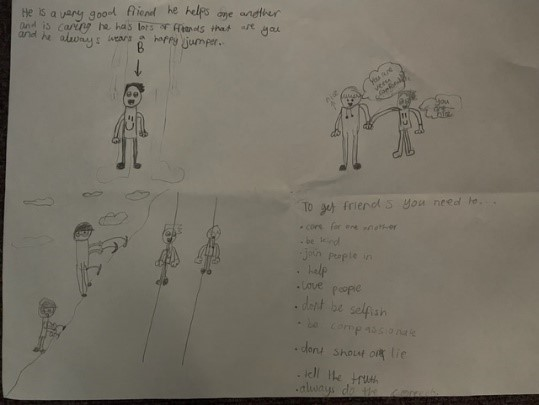 He is a very good friend he helps one another
and is caring he has lots of friends that are you
and he always wears a happy jumper..
B
You are
very
you
are
nice
To get friends you need to...
• care for one another
• be kind
• join people in
• help
• Love people
• dont be selfish
• be compassionate
• dont shout or lie
• tell the truth
• always do the